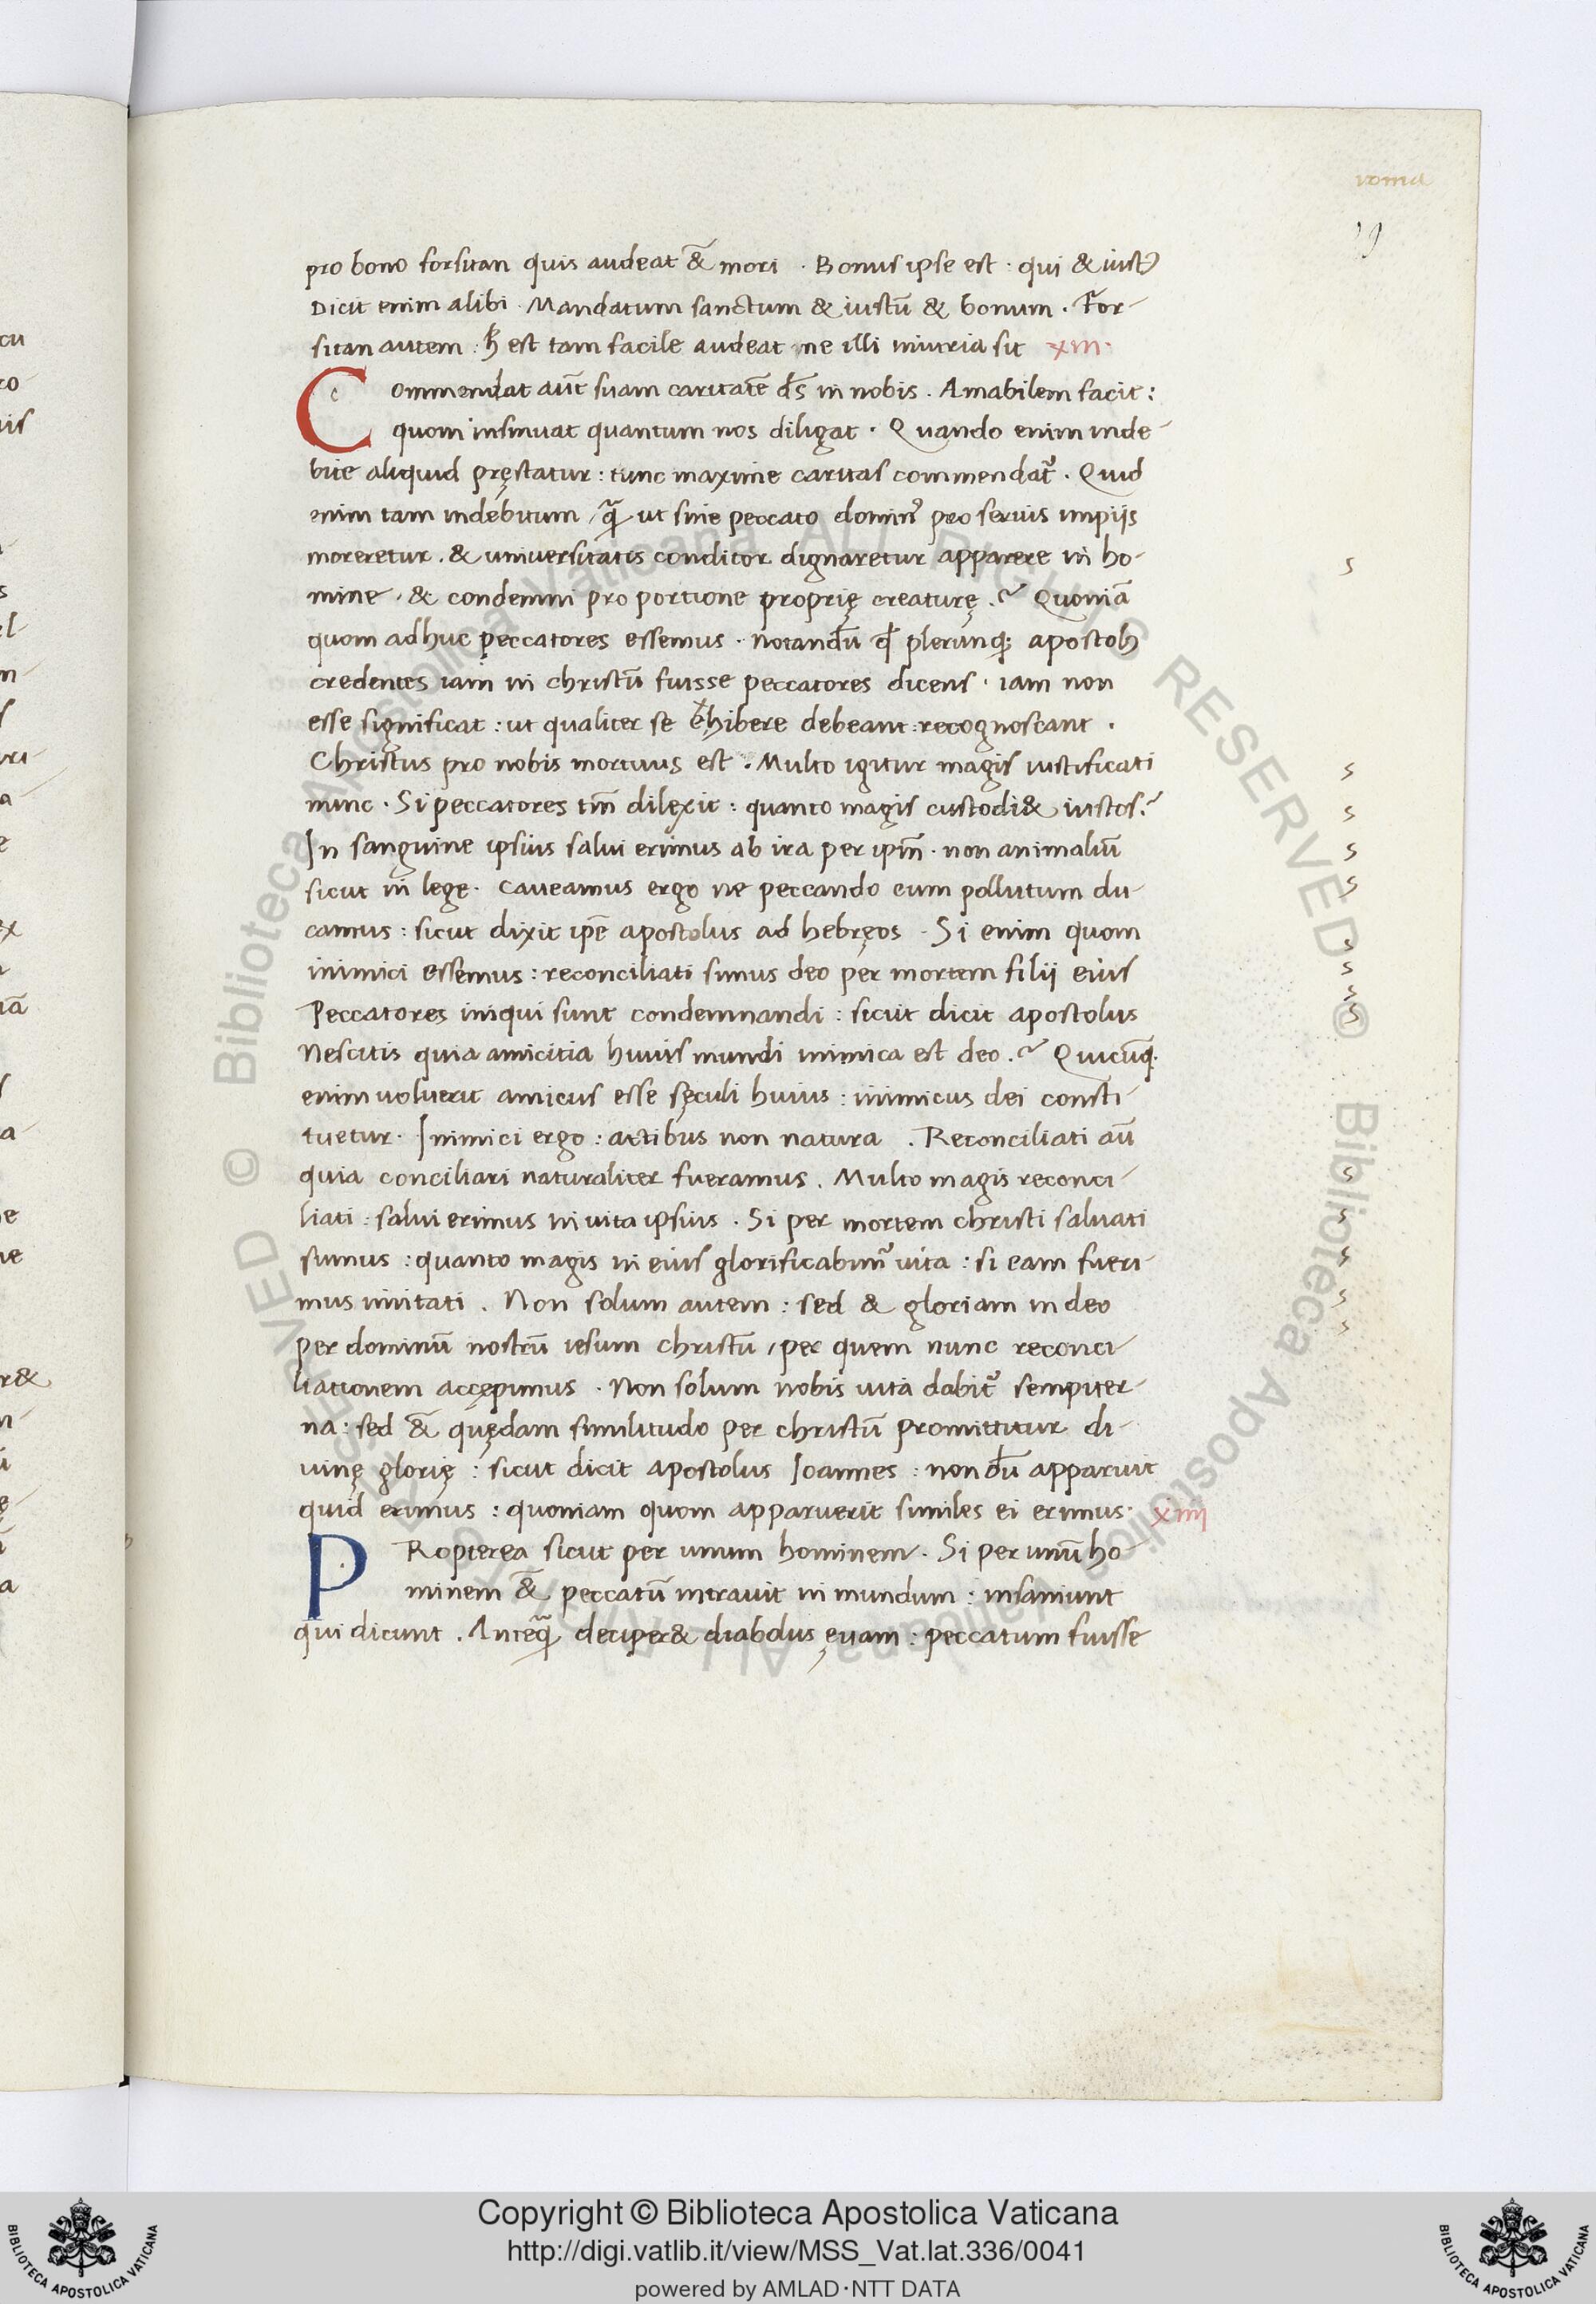 roma
pro bono forsitan quis audeat &̄ mori . Bonus ipse est : qui & iustꝰ
Dicit enim alibi . Mandatum sanctum & iustū & bonum . For-
sitan autem : est tam facile audeat ne illi iniuria sit xiii.
Commendat aūt suam caritatē d̄s in nobis . Amabilem facit :
quom insinuat quantum nos diligat . Quando enim inde-
bite aliquid pręstatur : tunc maxime caritas commendatᷣ . Quid
enim tam indebitum / quā ut sine peccato dominꝰ pro servis impijs
moreretur . & universitatis conditor dignaretur apparere in ho-
mine . & condemni pro portione proprię creaturę . ? Quoniā
quom adhuc peccatores essemus . Notandū qđ plerunqꝫ apostolꝰ
credentes iam in christū fuisse peccatores dicens . iam non
esse significat : ut qualiter se exhibere debeant : recognoscant .
Christus pro nobis mortuus est . Multo igitur magis iustificati
nunc . Si peccatores tm̄ dilexit : quanto magis custodi& iustos . ?
In sanguine ipsius salui erimus ab ira per ipm̄ . non animaliū
sicut in lege . caveamus ergo ne peccando eum pollutum du-
camus : sicut dixit ipē apostolus ad hebręos . Si enim quom
inimici essemus : reconciliati sumus deo per mortem filii eius
Peccatores iniqui sunt condemnandi : sicut dicit apostolus
Nescitis quia amicitia huius mundi inimica est deo . ? Quicūqꝫ
enim voluerit amicus esse sęculi huius : inimicus dei consti-
tuetur . Inimici ergo : actibus non natura . Reconciliati aū
quia conciliari naturaliter fueramus . Multo magis reconci-
liati : salui erimus in uita ipsius . Si per mortem christi saluati
sumus : quanto magis in eius glorificabimᷣ uita : si eam fueri-
mus imitati . Non solum autem : sed & gloriam in deo
per dominū nostrū iesum christū / per quem nunc reconci-
liationem accępimus . Non solum nobis uita dabitᷣ sempiter-
na : sed &̄ quędam similitudo per christū promittitur di-
uinę glorię : sicut dicit apostolus Ioannes : non dū apparuit
quid erimus : quoniam quom apparuerit similes ei erimus . xiiii
PRopterea sicut per unum hominem . Si per unū ho-
minem &̄ peccatū intravit in mundum : insaniunt
qui dicunt . Antequā deciper& diabolus ęvam : peccatum fuisse
© Biblioteca Apostolica Vaticana ALL RIGHTS RESERVED
Copyright © Biblioteca Apostolica Vaticana
http://digi.vatlib.it/view/MSS_Vat.lat.336/0041
powered by AMLAD·NTT DATA
BIBLIOTECA APOSTOLICA VATICANA
BIBLIOTECA APOSTOLICA VATICANA